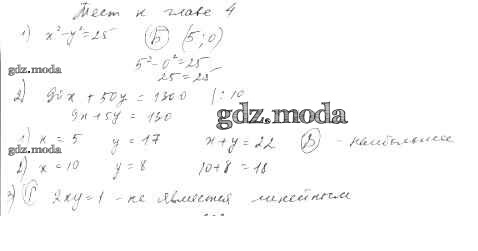 Тест к главе 4
1) x²-y²=25 (Б) (5;0)
5²-0²=25
gdz.moda
25=25
2) 90x + 50y = 1300 |:10
gdz.moda
9x + 5y = 130
1) x = 5 y = 17 x+y = 22 (В) - наибольшее
gdz.moda
2) x = 10 y = 8 10+8 = 18
3) 2xy=1 - не является линейным